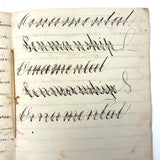 Ornamental
Penmanship
Ornamental
Penmanship
Ornamental